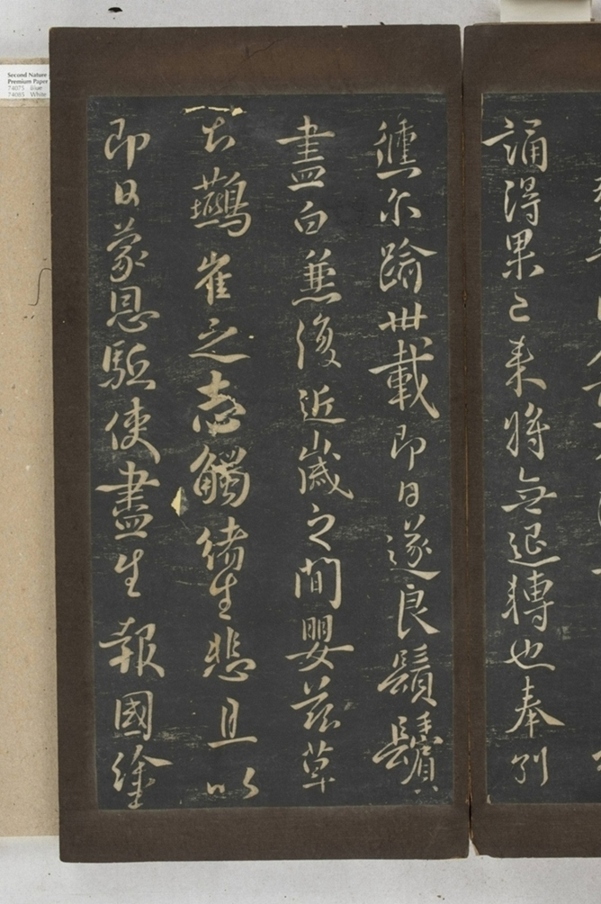 誦得果已來將無退轉也奉別
儵尒踰卅載即日遂良鬚鬢
盡白兼復近歲之間嬰茲草
土鷰雀之志觸緒生悲且以
即日蒙恩駈使盡生報國塗
Second Nature
Premium Paper
74075 Blue
White